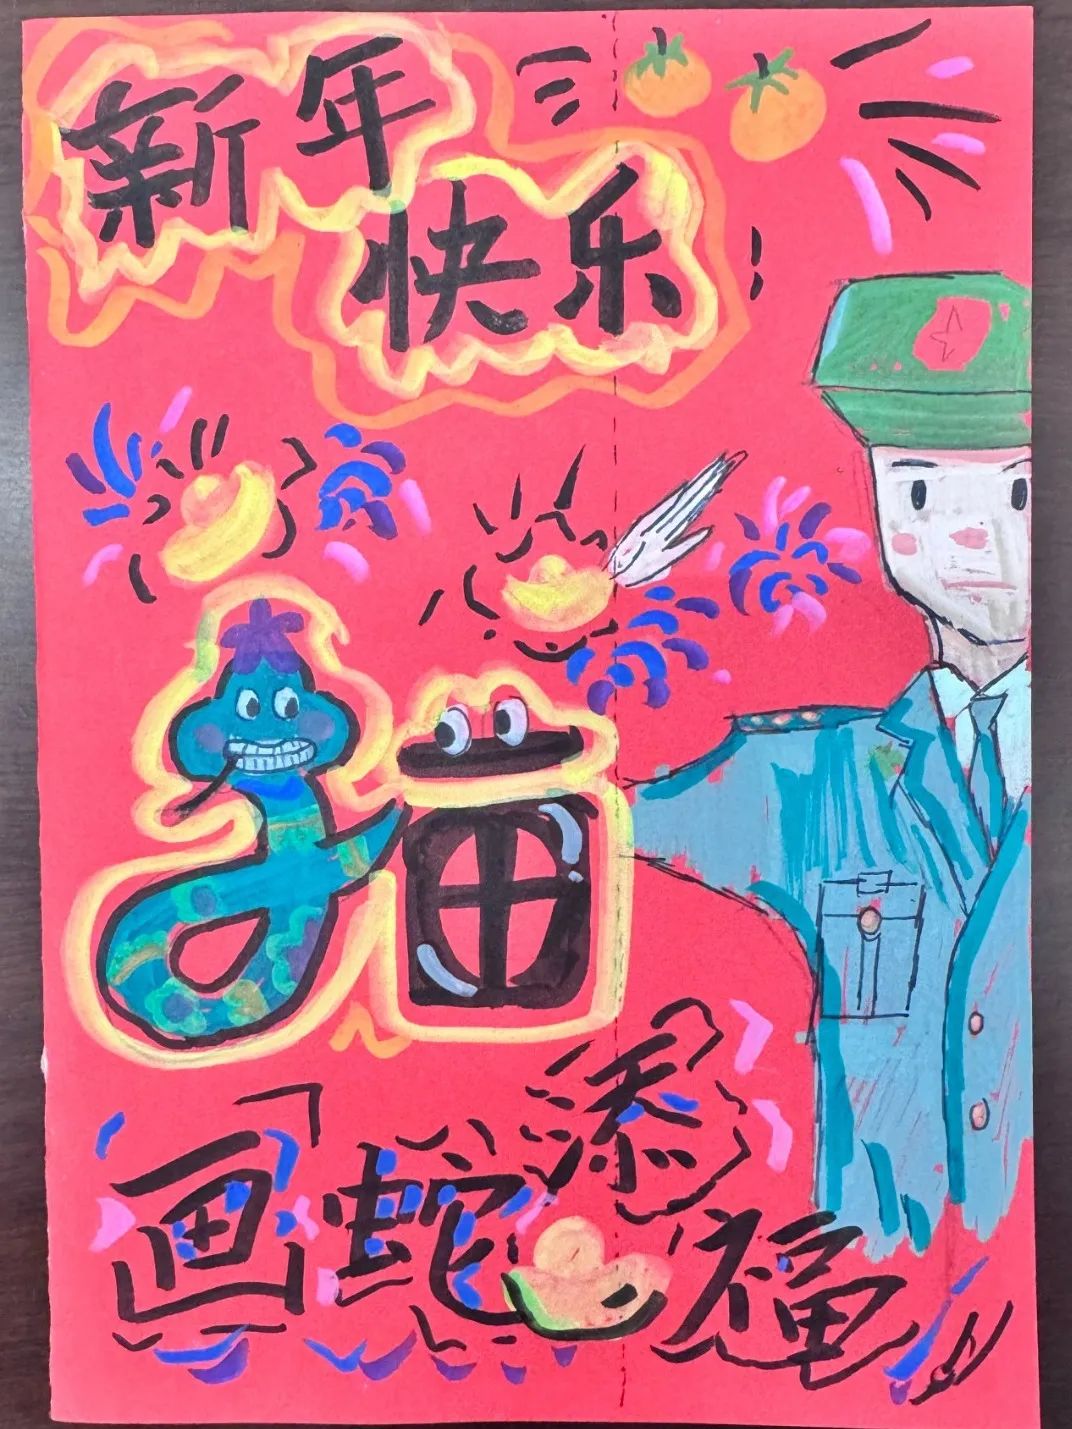 新年
快乐
画蛇添福